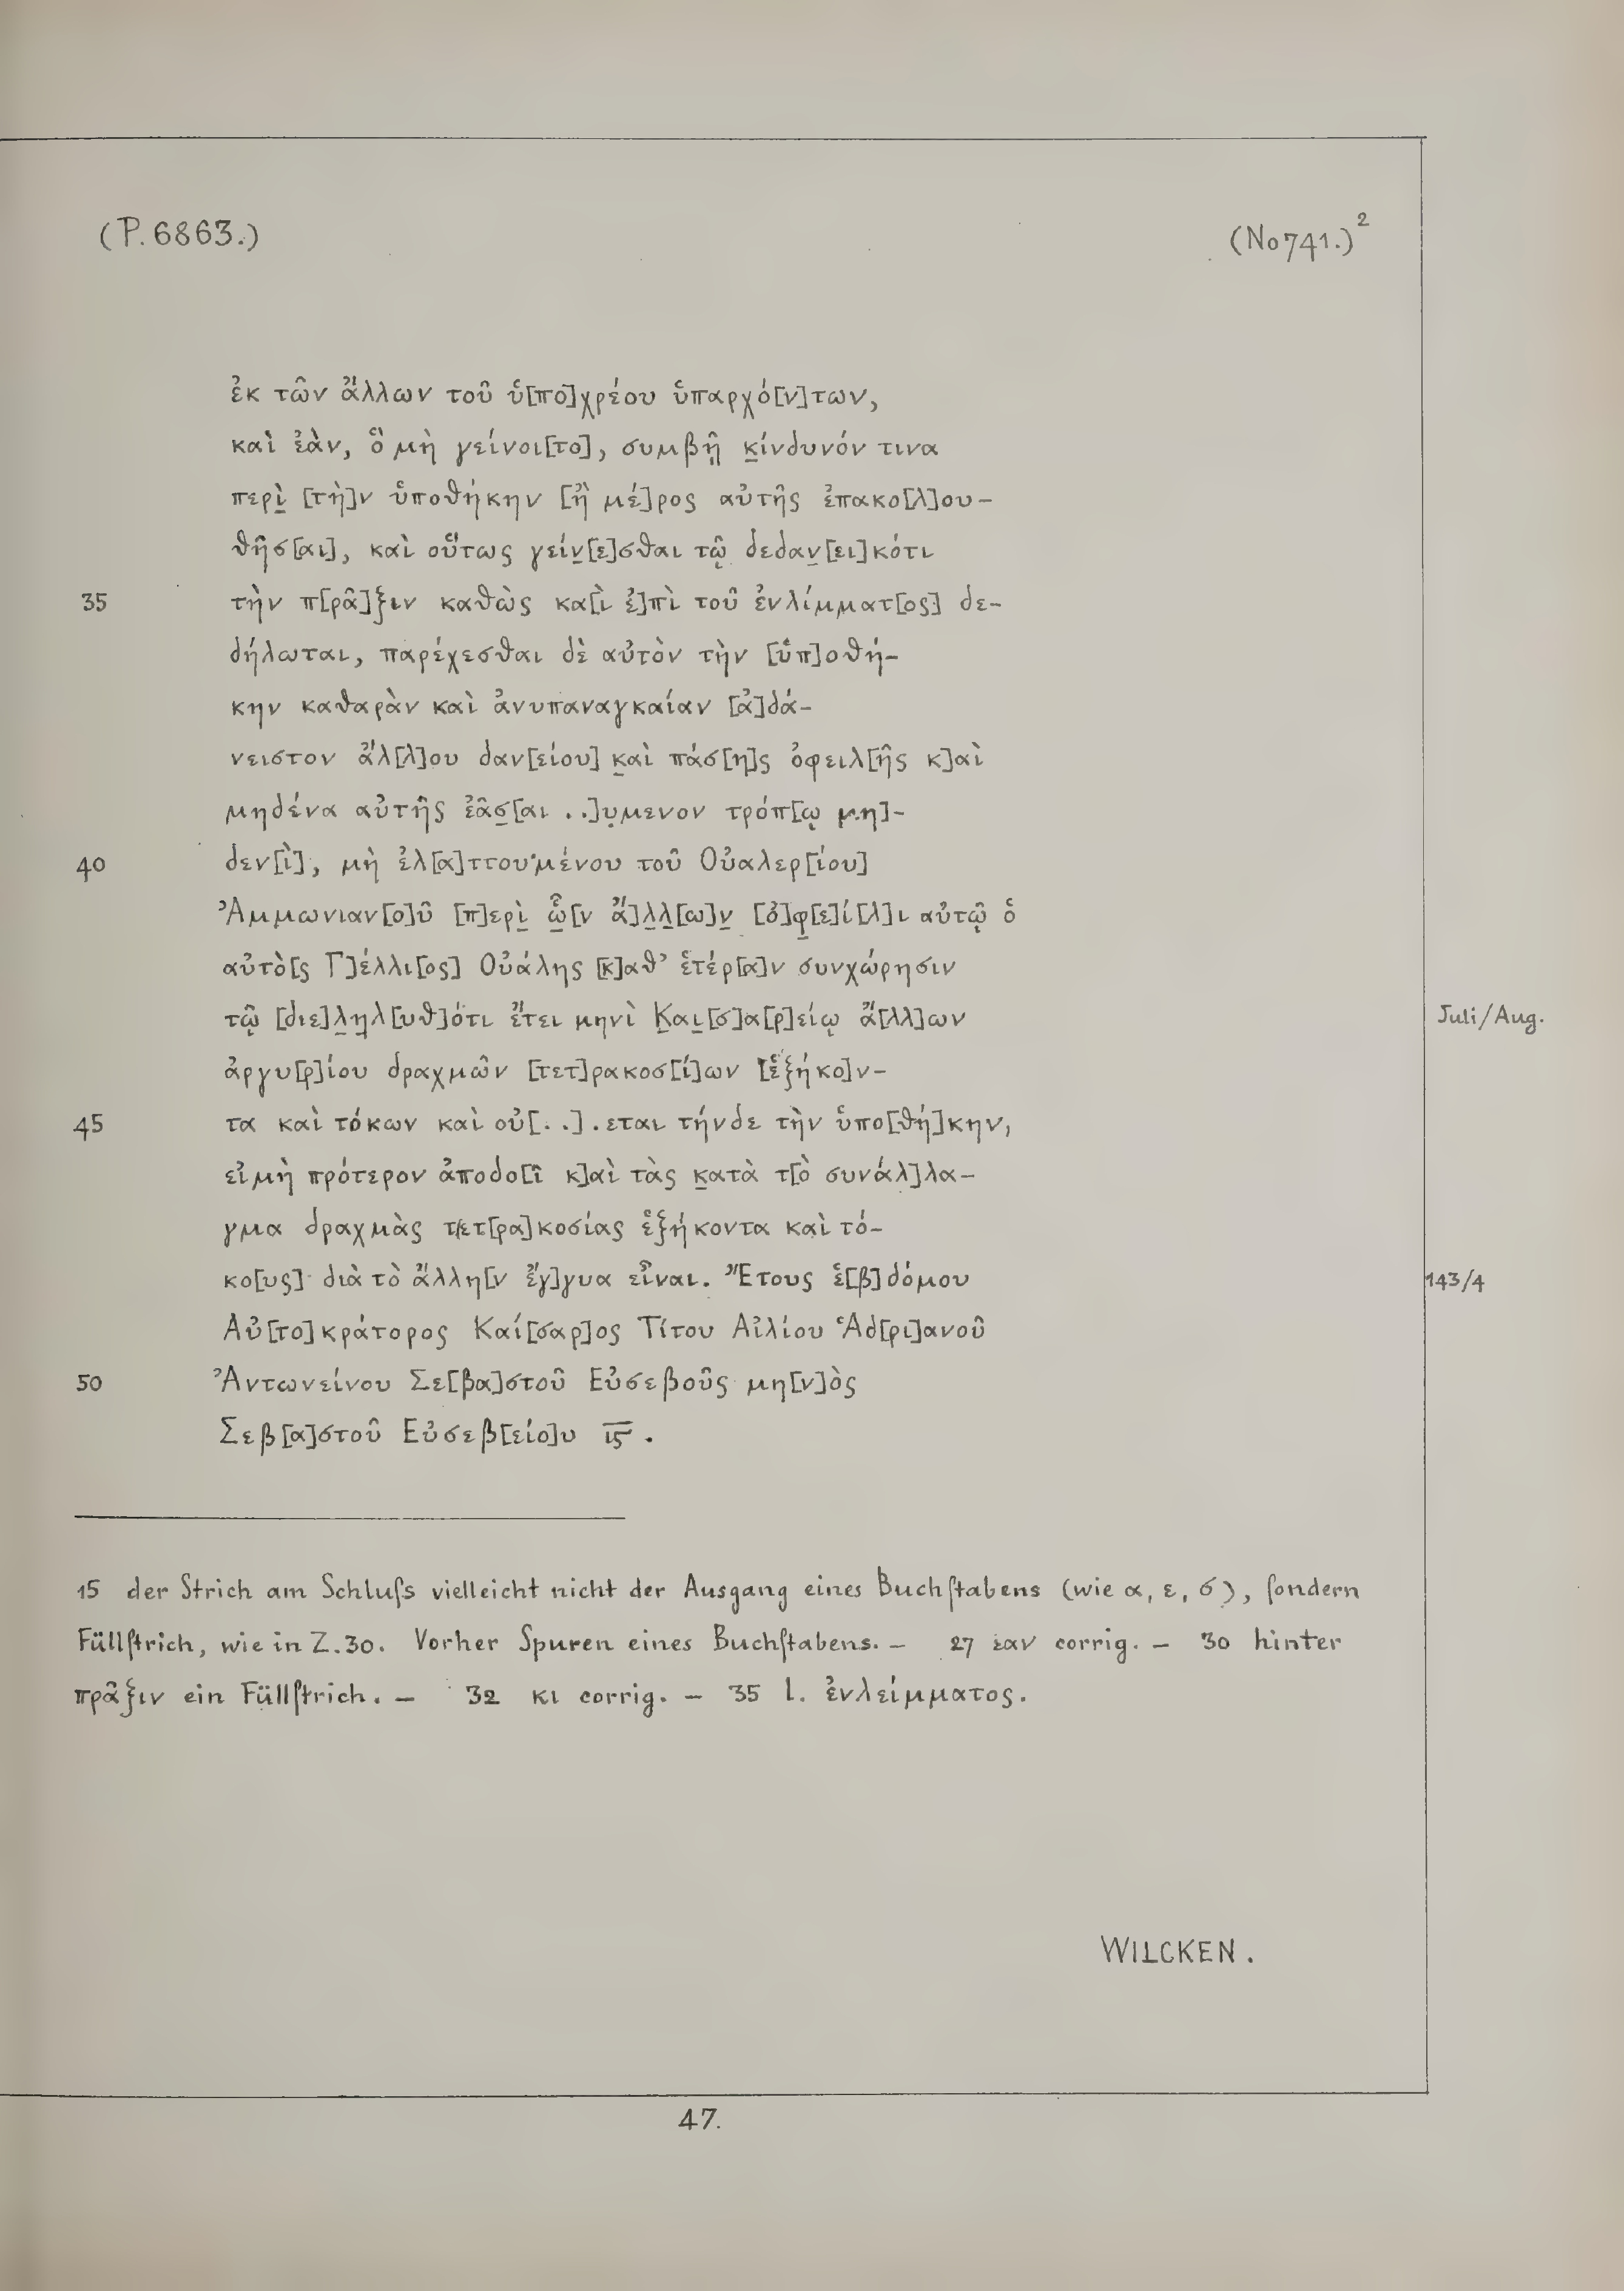 (P. 6863.)
(No 741.)²
ἐκ τῶν ἄλλων τοῦ ὑ[πο]χρέου ὑπαρχό[ν]των,
καὶ ἐὰν, ὃ μὴ γείνοι[το], συμβῇ κ̣ίνδυνόν τινα
περὶ̣ [τὴ]ν ὑποθήκην [ἢ μέ]ρος αὐτῆς ἐπακο[λ]ου-
θῆσ[αι], καὶ οὕτως γείν̣[ε]σθαι τῷ δεδαν̣[ει]κότι
35 τὴν π[ρᾶ]ξιν καθὼς κα[ὶ ἐ]πὶ τοῦ ἐνλίμματ[ος] δε-
δήλωται, παρέχεσθαι δὲ αὐτὸν τὴν [ὑπ]οθή-
κην καθαρὰν καὶ ἀνυπαναγκαίαν [ἀ]δά-
νειστον ἄλ[λ]ου δαν[είου] κ̣αὶ πάσ[η]ς ὀφειλ[ῆς κ]αὶ
μηδένα αὐτῆς ἐᾶσ̣[αι ..]υ̣μενον τρόπ[ῳ μη]-
40 δεν[ὶ], μὴ ἐλ[α]ττουμένου τοῦ Οὐαλερ[ίου]
Ἀμμωνιαν[ο]ῦ [π]ερὶ̣ ὧ̣[ν ἄ]λ̣λ̣[ω]ν̣ [ὀ]φ̣[ε]ί[λ]ι αὐτῷ ὁ
αὐτὸ[ς Γ]έλλι[ος] Οὐάλης [κ]αθ’ ἑτέρ[α]ν συνχώρησιν
τῷ [διε]λ̣η̣λ[υθ]ότι ἔτει μηνὶ Κ̣αι̣[σ]α[ρ]είῳ ἄ[λλ]ων
Juli/Aug.
ἀργυ[ρ]ίου δραχμῶν [τετ]ρακοσ[ί]ων [ἑξήκο]ν-
45 τα καὶ τόκων καὶ οὐ[..].εται τήνδε τὴν ὑπο[θή]κην,
εἰ μὴ πρότερον ἀποδο[ῖ κ]αὶ τὰς κ̣ατὰ τ[ὸ συνάλ]λα-
γμα δραχμὰς τετ[ρα]κοσίας ἑξήκοντα καὶ τό-
κο[υς] διὰ τὸ ἄλλη[ν ἔγ]γυα εἶναι. Ἔτους ἑ[β]δόμου
143/4
Αὐ[το]κράτορος Καί[σαρ]ος Τίτου Αἰλίου Ἁδ[ρι]ανοῦ
50 Ἀντωνείνου Σε[βα]στοῦ Εὐσεβοῦς μη[ν]ὸς
Σεβ[α]στοῦ Εὐσεβ[είο]υ ι̅ς̅.
15 der Strich am Schluſs vielleicht nicht der Ausgang eines Buchſtabens (wie α, ε, σ), ſondern
Füllſtrich, wie in Z. 30. Vorher Spuren eines Buchſtabens. — 27 εαν corrig. — 30 hinter
πρᾶξιν ein Füllſtrich. — 32 κι corrig. — 35 l. ἐνλείμματος.
WILCKEN.
47.